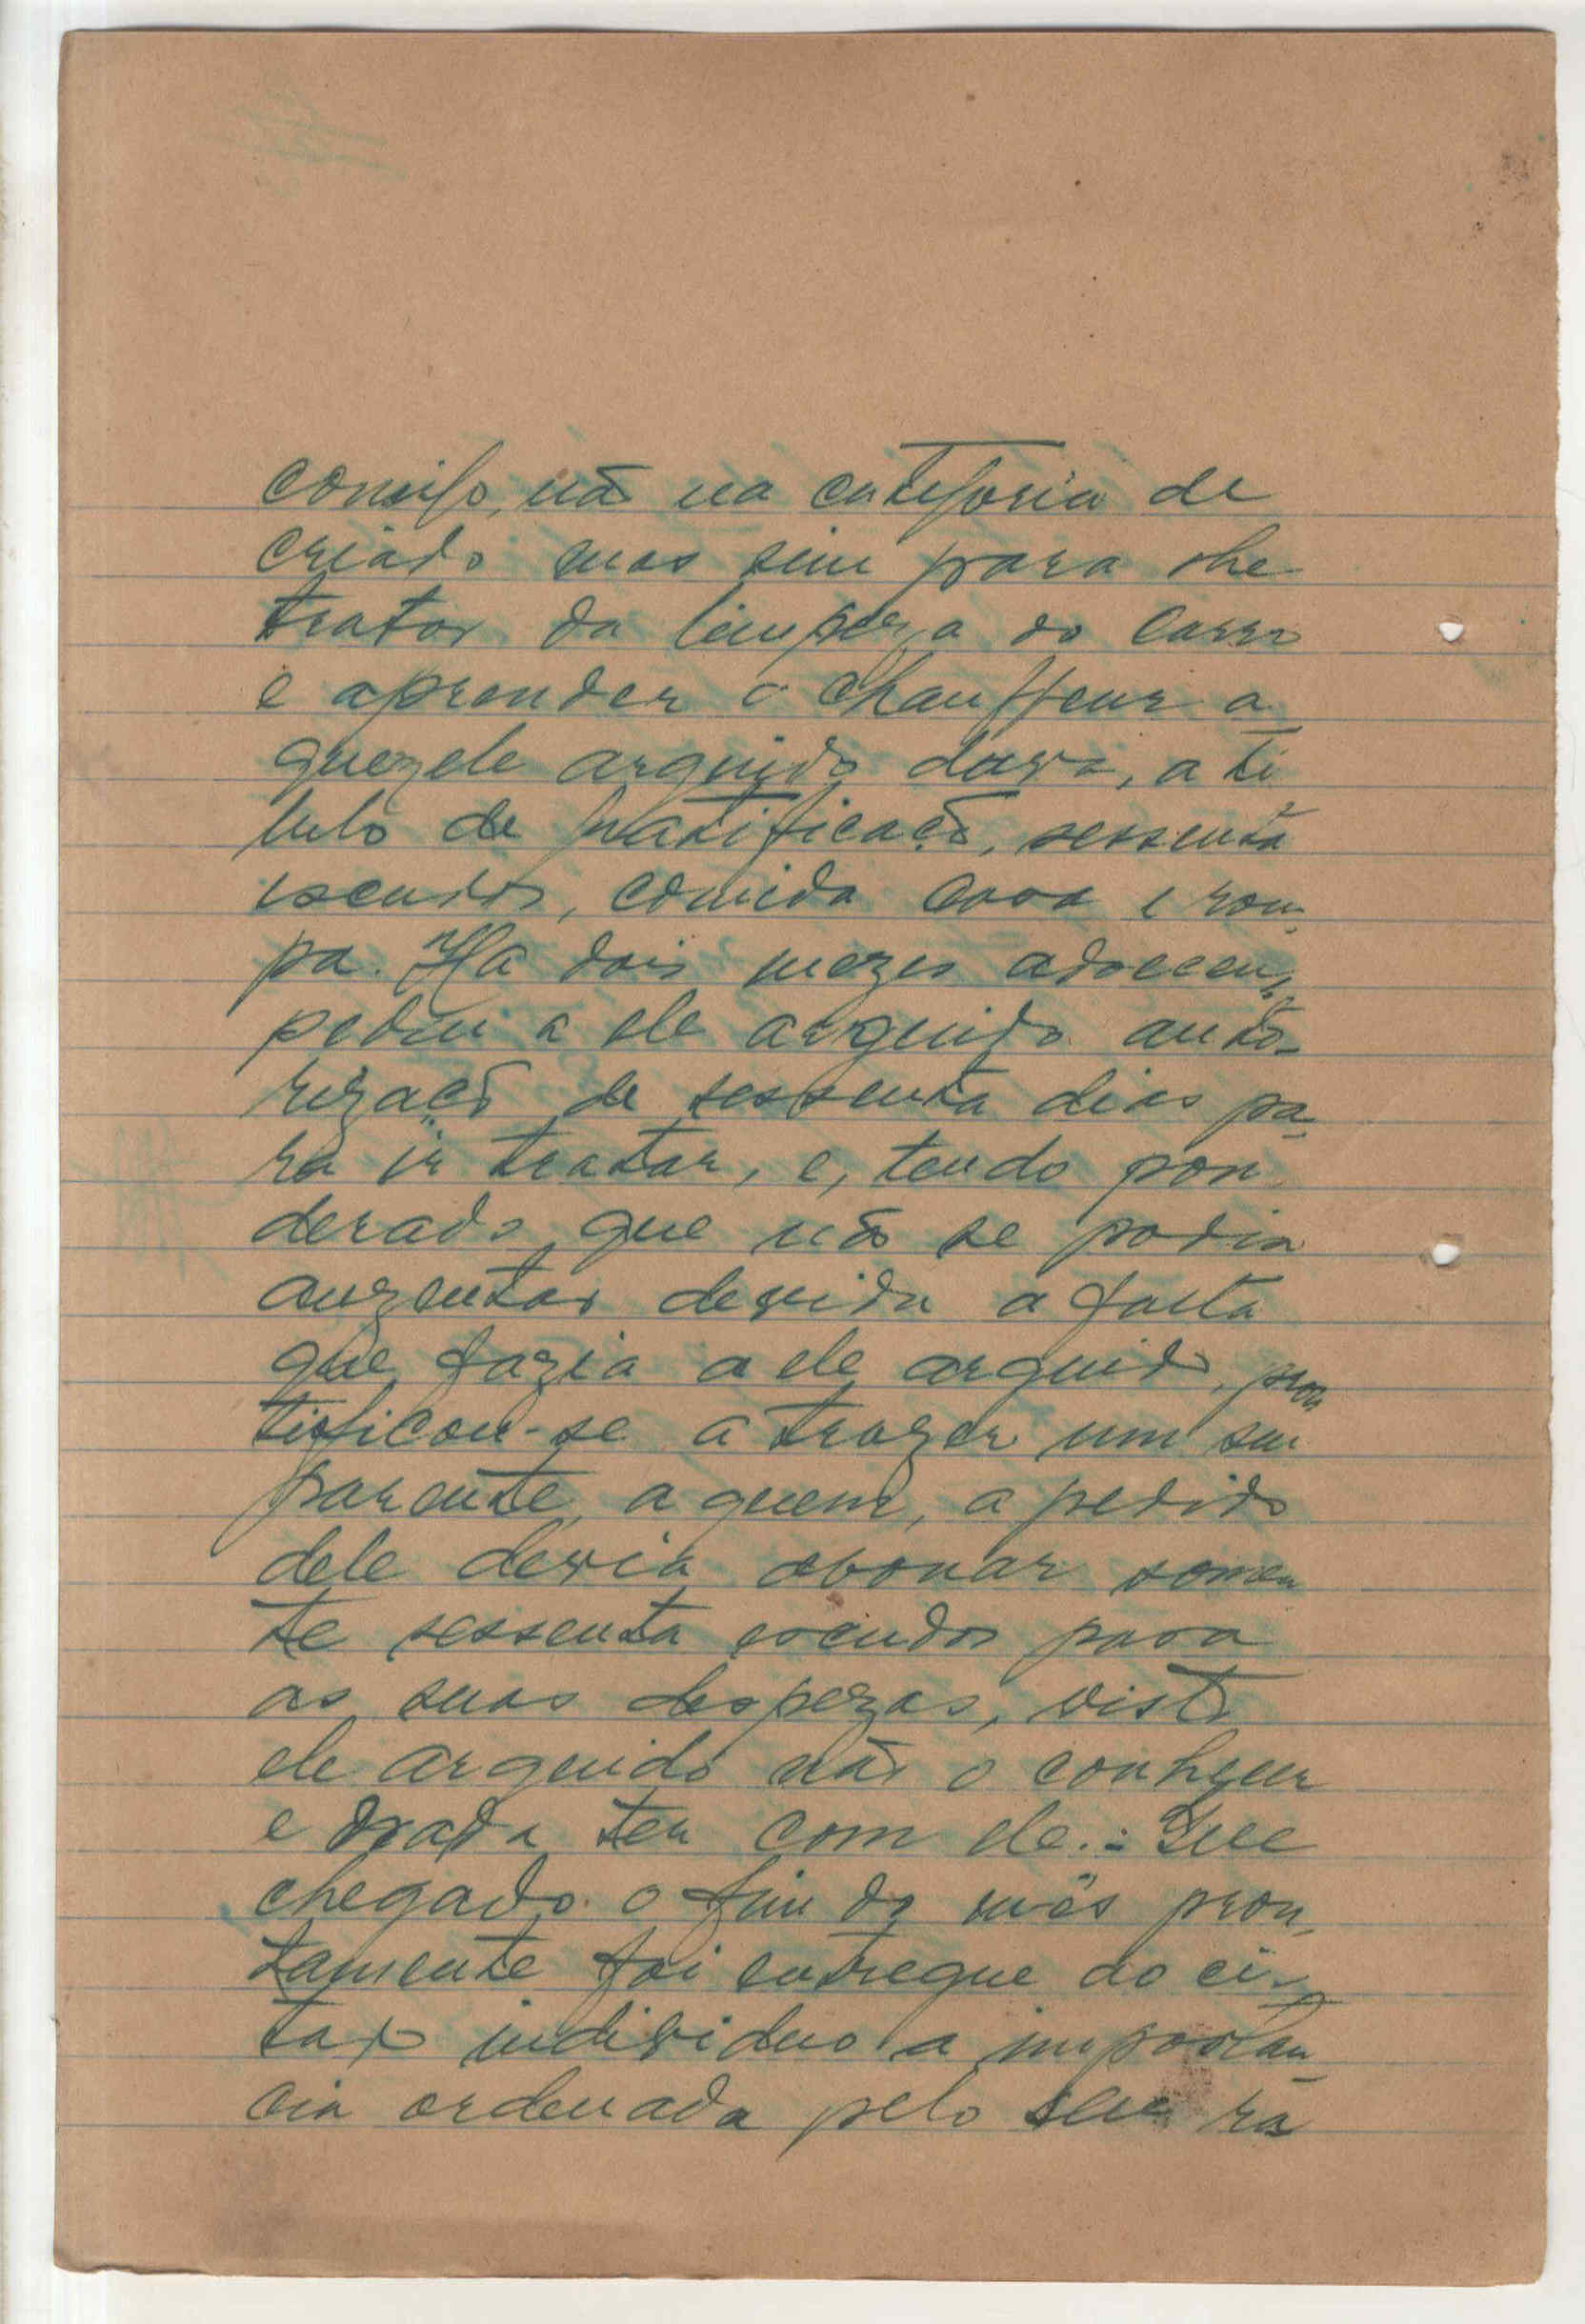 comigo, não na categoria de
criado mas sim para lhe
tratar da limpeza do carro
e aprender o chauffeur a
quem ele arguido dava, a ti
tulo de gratificação, sessenta
escudos, comida casa e rou-
pa. Ha dois mezes adoeceu,
pediu a ele arguido auto-
rização de sessenta dias pa-
ra ir tratar, e, tendo pon
derado que não se podia
auzentar devido a falta
que fazia a ele arguido, pron
tificou-se a trazer um seu
parente, a quem, a pedido
dele devia abonar somen
te sessenta escudos para
as suas despezas, visto
ele arguido não o conhecer
e nada ter com ele.= Que
chegado o fim do mês pron-
tamente foi entregue ao ci-
tado individuo a importan-
cia ordenada pelo seu ra